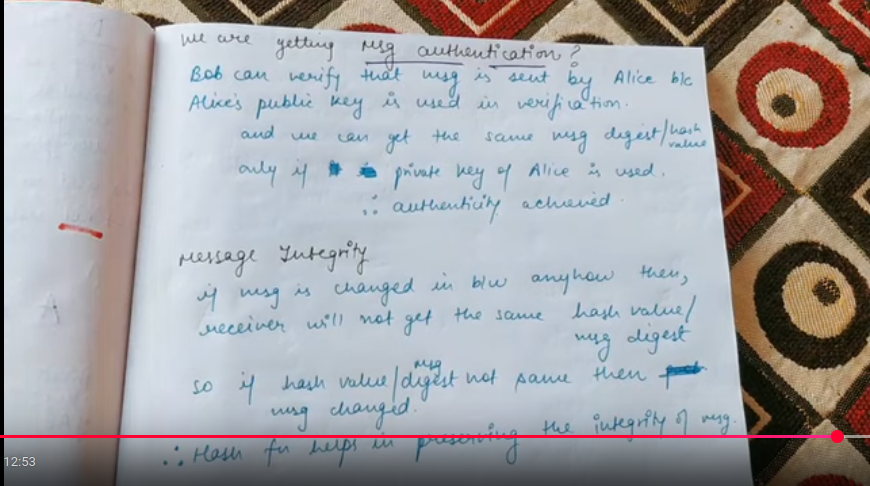 we are getting msg authentication?
Bob can verify that msg is sent by Alice b/c
Alice's public key is used in verification.
and we can get the same msg digest/hash value
only if private key of Alice is used.
∴ authenticity achieved.
Message Integrity
if msg is changed in b/w anyhow then,
receiver will not get the same hash value/
msg digest
so if hash value/msg digest not same then
msg changed.
∴ Hash fn helps in preserving the integrity of msg.
12:53